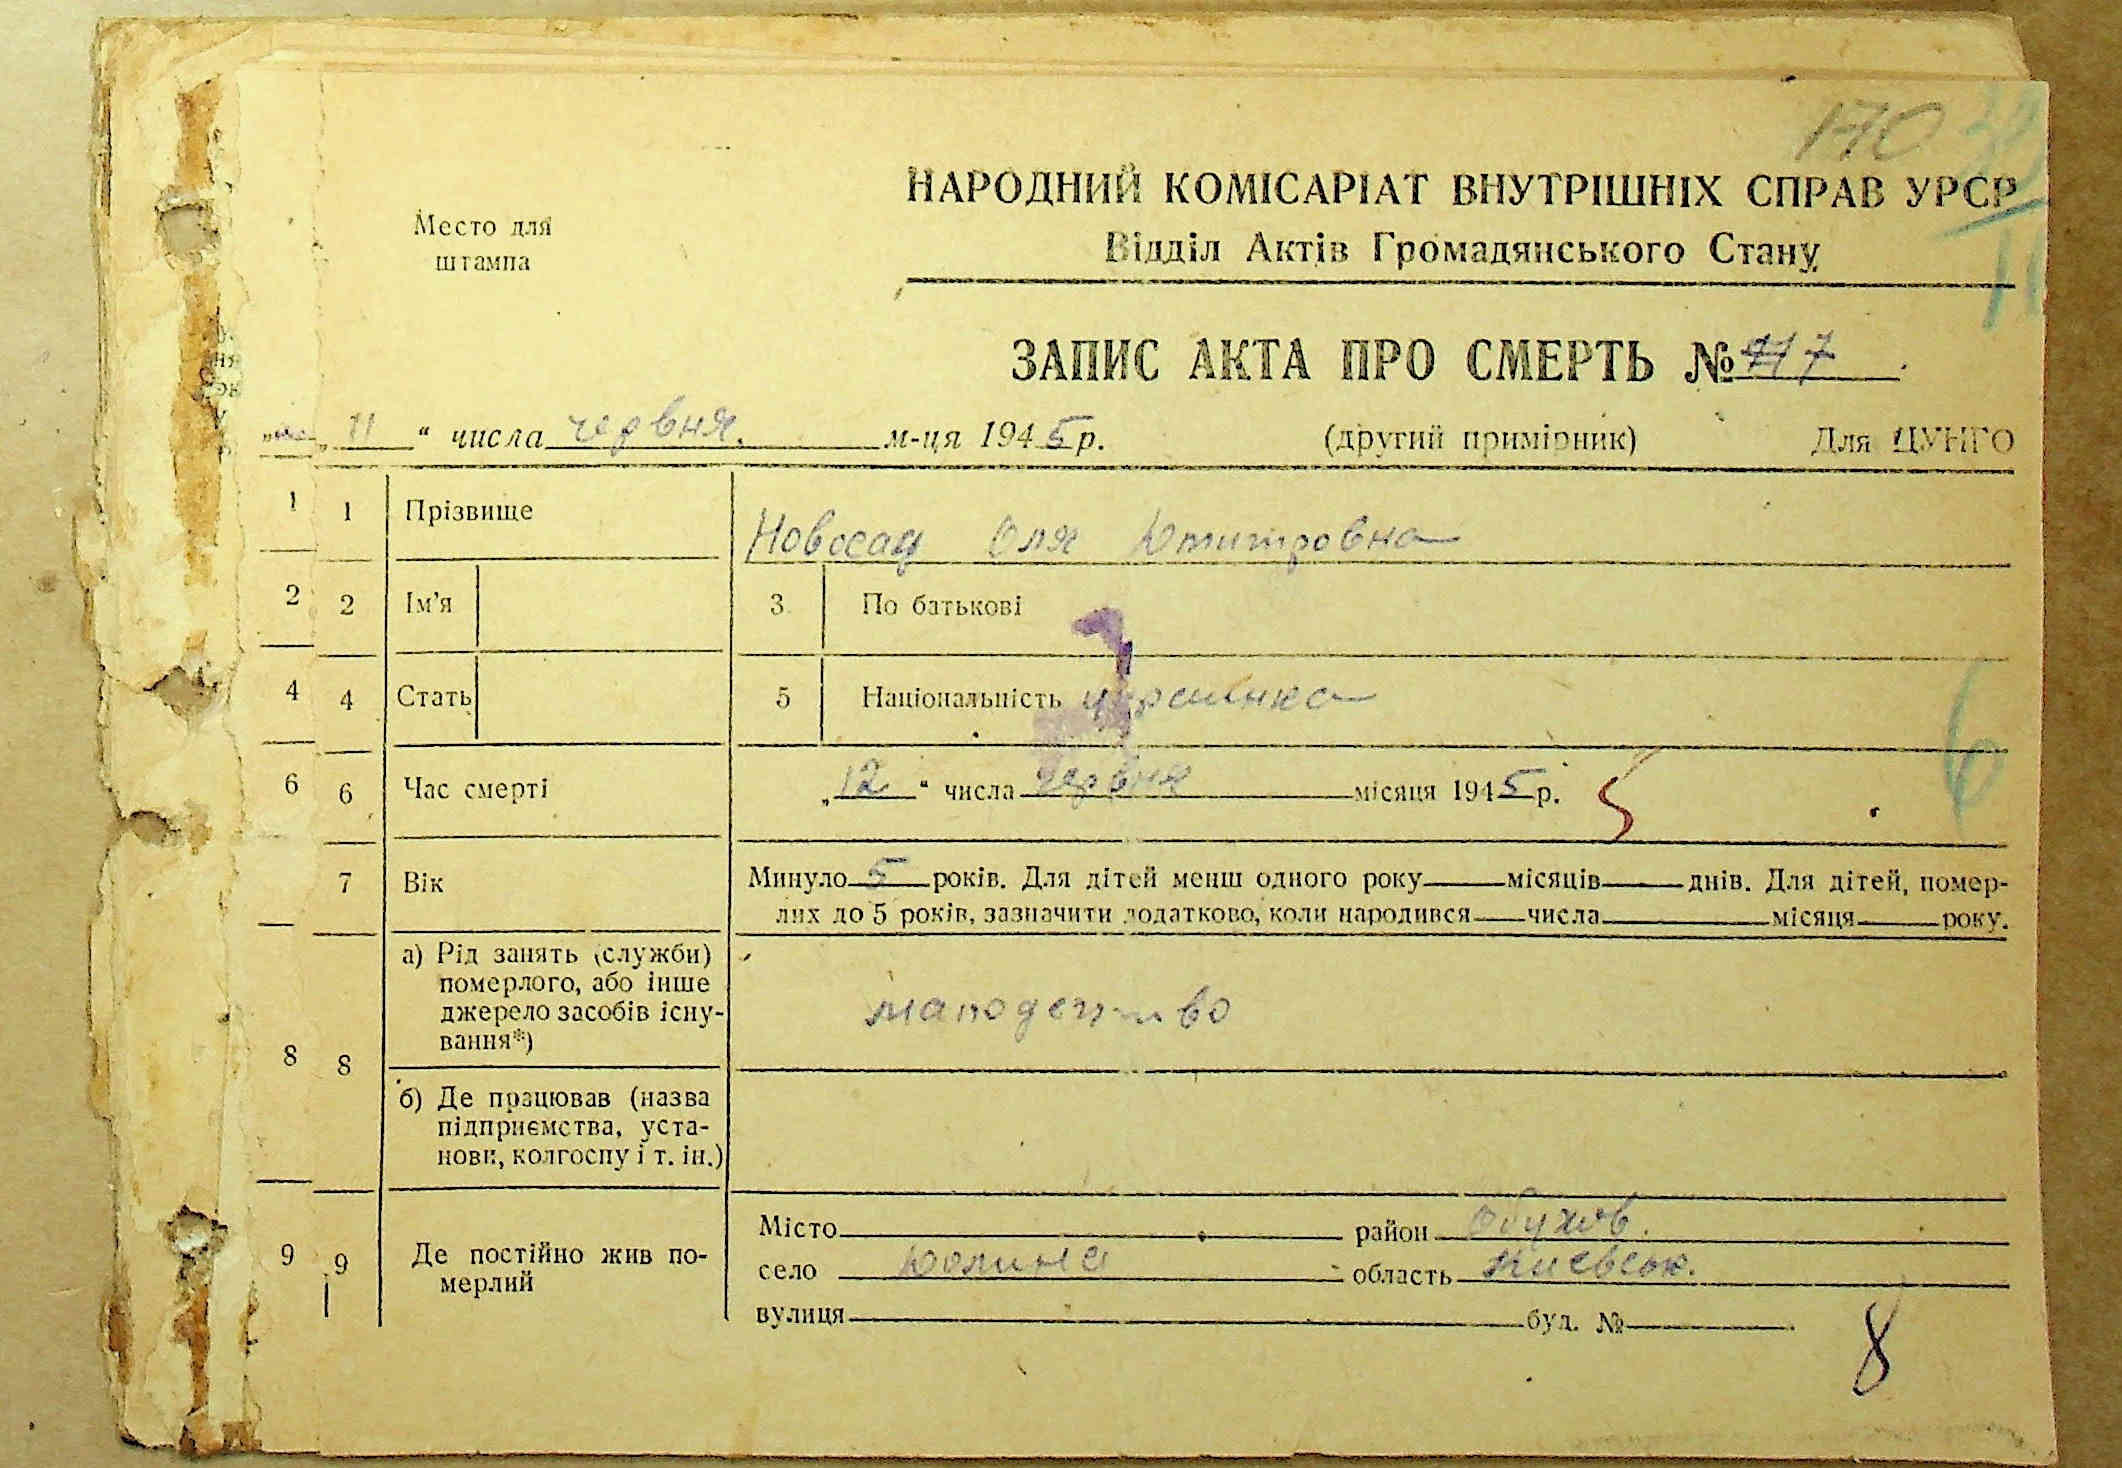 170
НАРОДНИЙ КОМІСАРІАТ ВНУТРІШНІХ СПРАВ УРСР
Место для
штампа
Відділ Актів Громадянського Стану
11
ЗАПИС АКТА ПРО СМЕРТЬ № 117
„ 11 “ числа червня. м-ця 1945 р. (другий примірник) Для ЦУНГО
1 1 Прізвище Новосад Оля Дмитровна
2 2 Ім’я 3 По батькові
4 4 Стать 5 Національність українка
6 6 Час смерті „ 12 “ числа червня місяця 1945 р. 5 6
7 Вік Минуло 5 років. Для дітей менш одного року місяців днів. Для дітей, помер-
лих до 5 років, зазначити додатково, коли народився числа місяця року.
8 8 а) Рід занять (служби)
померлого, або інше
джерело засобів існу-
вання*)
малодетство
б) Де працював (назва
підприємства, уста-
нови, колгоспу і т. ін.)
9 9 Де постійно жив по-
мерлий
Місто район Обухов.
село Долина область Києвськ.
вулиця буд. №
8